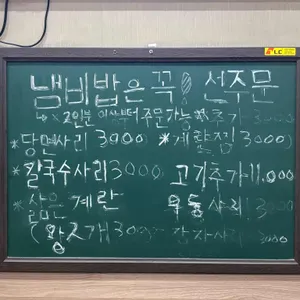 냄비밥은 꼭! 선주문
→ *2인분 이상부터 주문가능 *추가 3000
*당면사리 3000 *계란찜 3000
*칼국수사리 3000 고기추가 11,000
*삶은 계란 우동사리 3000
( 2개 300 감자사리 3000